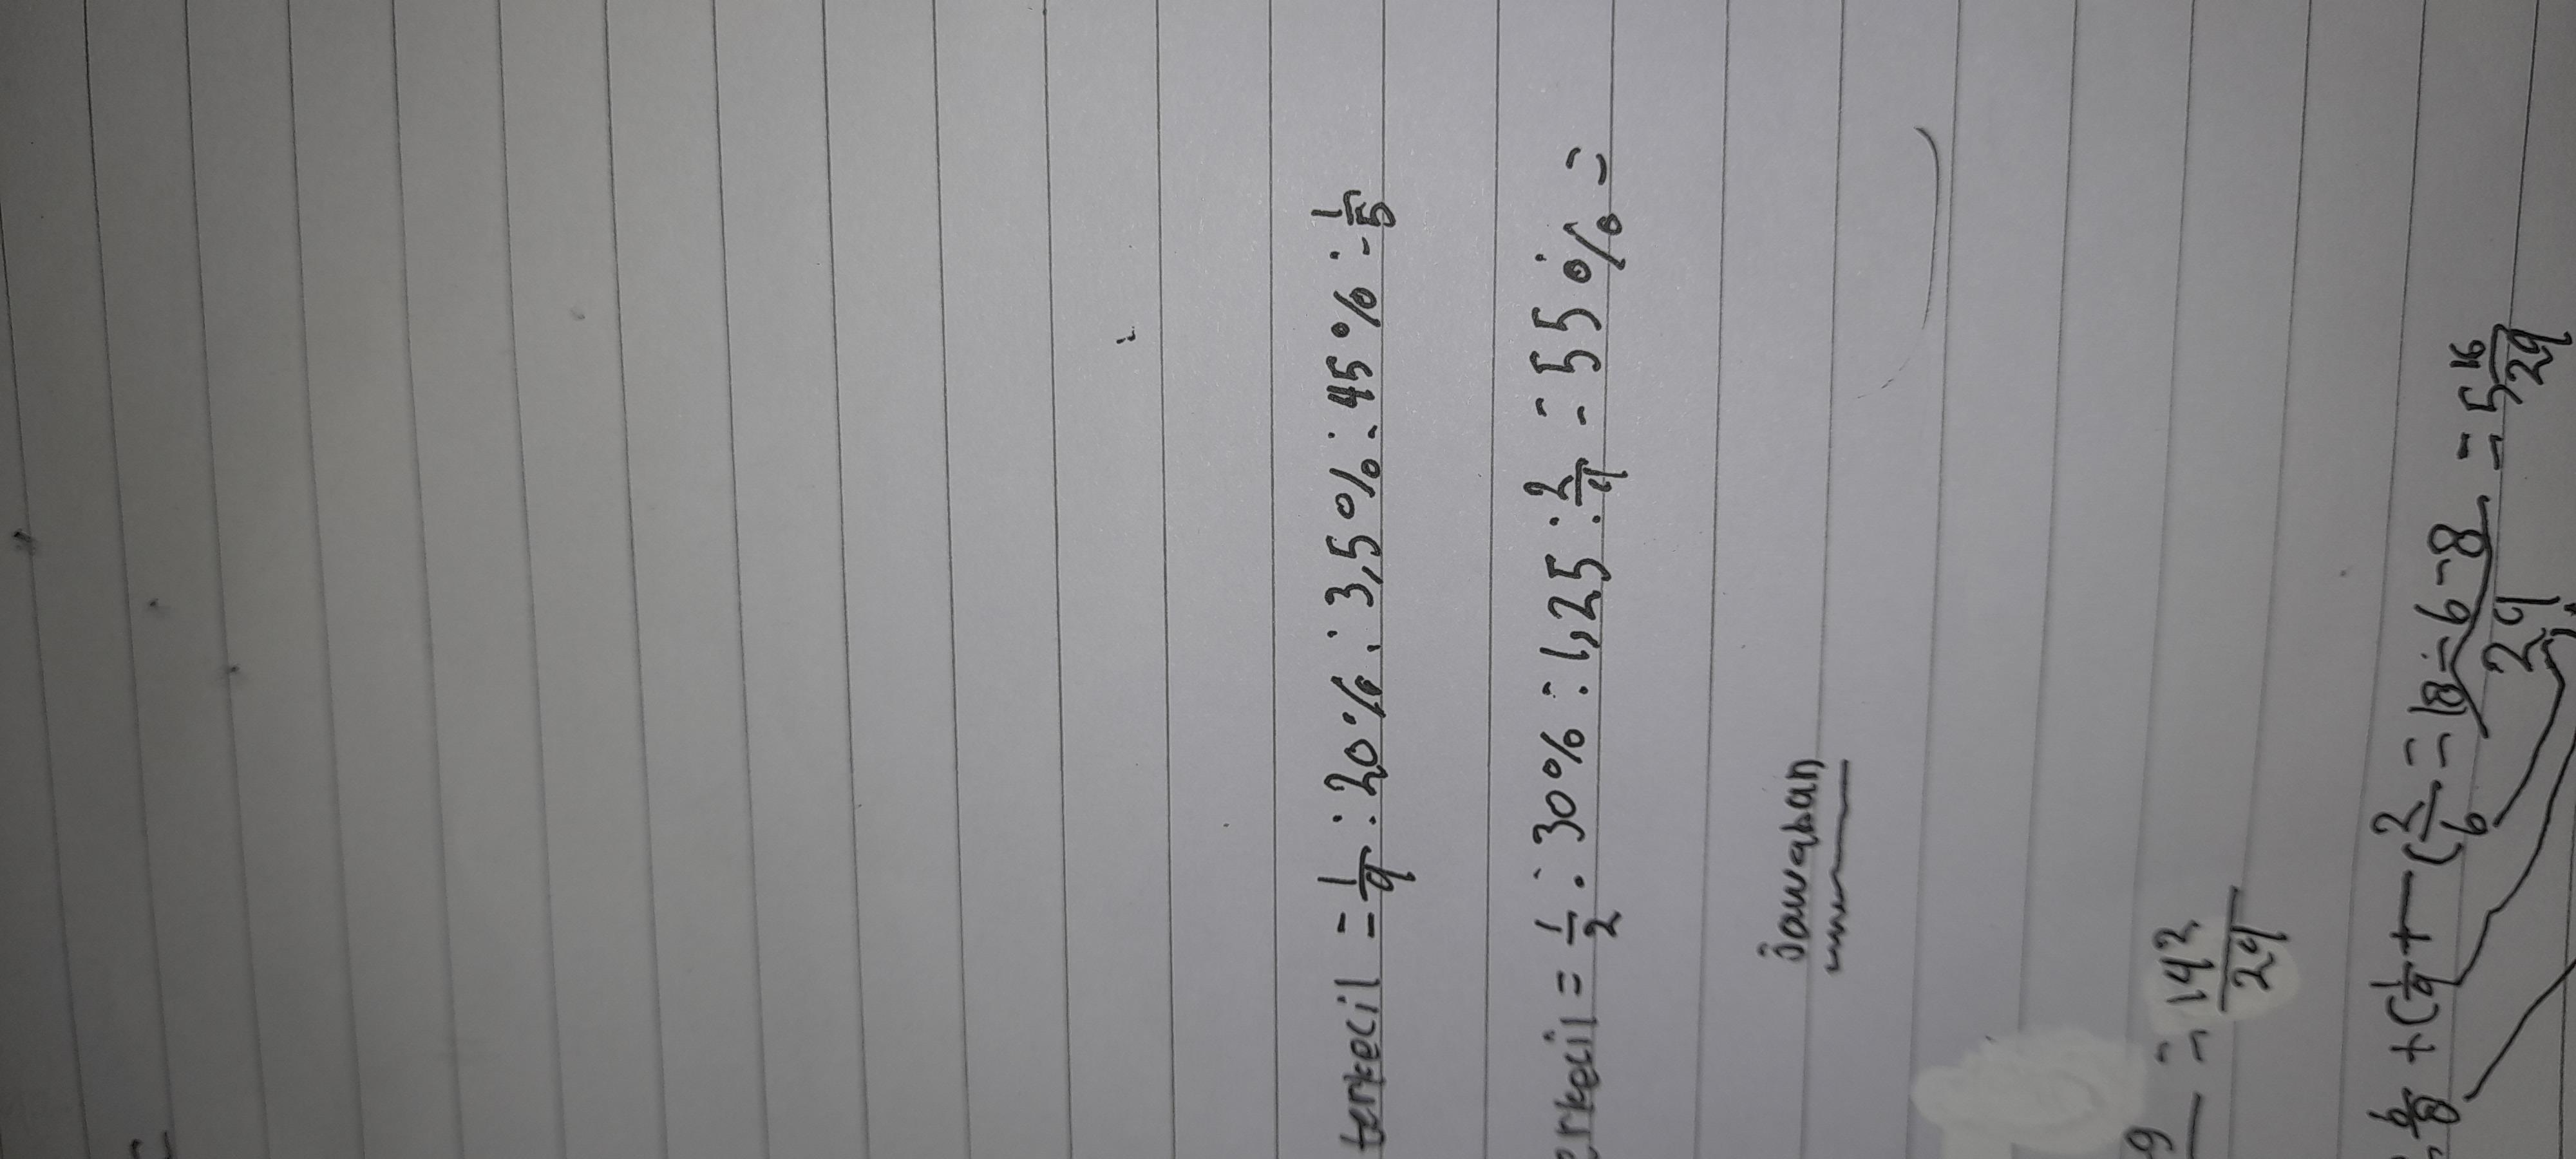 terkecil = 1/4 : 20% : 3,50% : 45% : -1/5
erkecil = 1/2 : 30% : 1,25 : 2/4 = 55% =
Jawaban
9 = 14 2/24
6/8 + (1/4 + - (2/6 = = 18 = 6 - 8/24 = 5 16/24